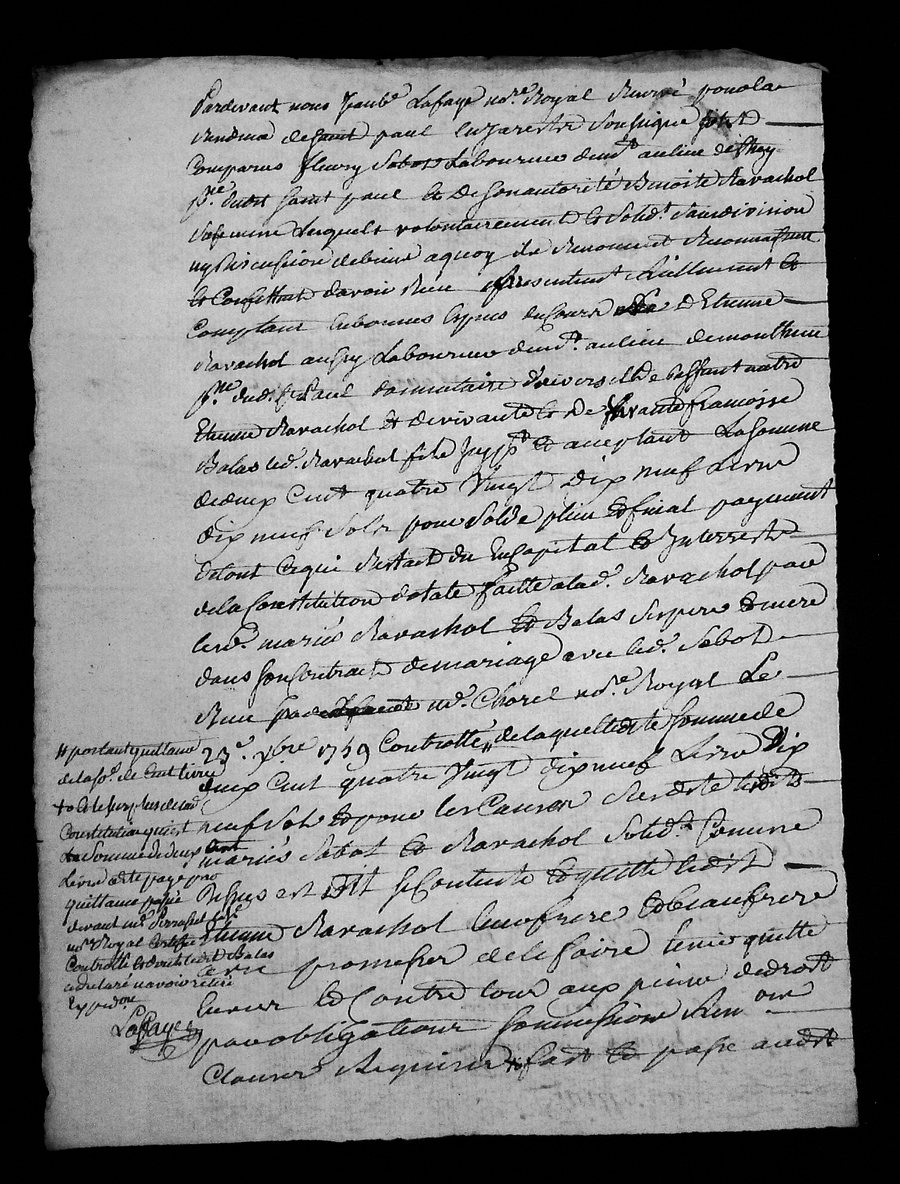 Pardevant nous Jean Bte Lafaye nore Royal Reservé pour la
residence de saint paul en Jarestz soussigné fut
Comparus fleury Sabot Laboureur demt au lieu de
pse dudit saint paul et de son autorité Benoite Ravachol
sa femme Lesquels volontairement et solidt sans division
ny discussion de biens a quoy ils Renoncent Reconnaissent
et Confessent d'avoir Reçu presentement Reellement et
Comptant en bonnes Especes de Cours d'Etienne
Ravachol aussy Laboureur demt au lieu de
pse dud. st Paul donnataire d'autre
Etienne Ravachol et de vivante françoise
Balas led. Ravachol fils icy pt et acceptant La somme
de deux Cent quatre Vingt Dix neuf Livre
dix neuf Sols pour Solde plein et final payement
de tout ce qui Restait du En Capital et Interrests
de la Constitution dotale faitte a lad. Ravachol par
lesd. mariés Ravachol et Balas ses pere et mere
dans son Contrait de mariage avec led. Sabot
Reçu par me Chorel nore Royal Le
23e xbre 1759 Controllé, de laquelle dte somme de
deux Cent quatre Vingt dix neuf Livre Dix
neuf Sols et pour les Causes susdite lesdits
mariés Sabot et Ravachol Solidt Comme
Dessus est dit se Contente et quitte ledit
Etienne Ravachol leur frere et beaufrere
avec promesse de le faire tenir quitte
envers et Contre tous aux peines de droit
par obligations soumissions Renon
Clauses Requises fait et passé audit
# portant quittance
de la so. de Cent livre
+ et le surplus de lad
Constitution qui est
La Somme de deux Cent
Livre a été payé par
quittance passé
devant me
nore Royal
Controllé
a declaré n'avoir retiré
Expon.
Laffaye